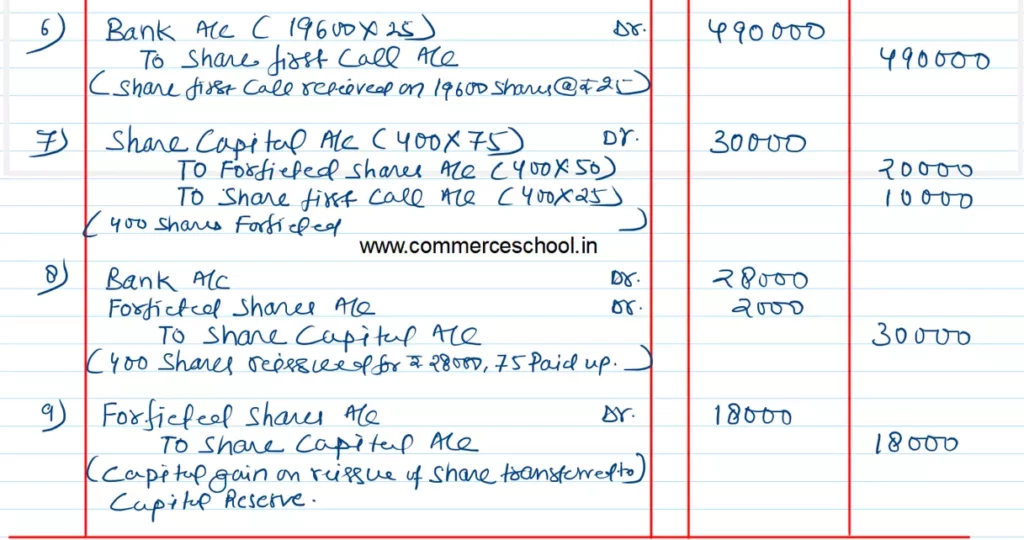 6) Bank A/c (19600 x 25) Dr. 490000
To Share first Call A/c 490000
(Share first Call recieved on 19600 shares @ ₹ 25)
7) Share Capital A/c (400 x 75) Dr. 30000
To Forficted Shares A/c (400 x 50) 20000
To Share first Call A/c (400 x 25) 10000
(400 Shares Forficted)
www.commerceschool.in
8) Bank A/c Dr. 28000
Forficted Shares A/c Dr. 2000
To Share Capital A/c 30000
(400 Shares reissued for ₹ 28000, 75 Paid up.)
9) Forficted Shares A/c Dr. 18000
To Share Capital A/c 18000
(Capital gain on reissue of Share transferred to)
Capital Reserve.